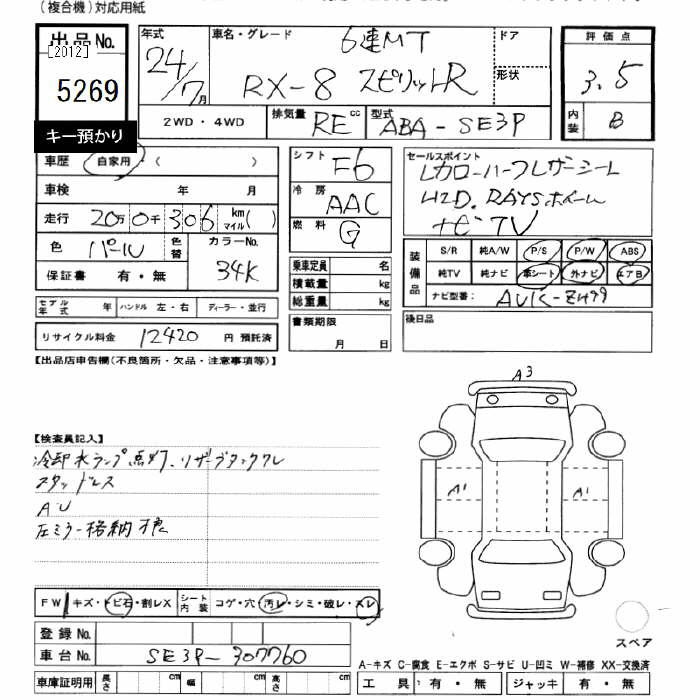 (複合機)対応用紙
出品No.
[2012]
5269
キー預かり
年式 24/7月
車名・グレード 6速MT
RX-8 スピリットR
ドア
形状
2WD・4WD
排気量 RE cc
型式 ABA-SE3P
評価点
3.5
内装 B
車歴 自家用・( )
車検 年 月
走行 20万0千306 km マイル( )
色 パール 色替
カラーNo. 34K
保証書 有・無
シフト F6
冷房 AAC
燃料 G
乗車定員 名
積載量 kg
総重量 kg
セールスポイント
レカロハーフレザーシート
HID. RAYSホイール
ナビTV
装備品
S/R 純A/W P/S P/W ABS
純TV 純ナビ 革シート 外ナビ エアB
ナビ型番:
モデル年式 年 ハンドル 左・右 ディーラー・並行
リサイクル料金 12420 円 預託済
書類期限
月 日
後日品
【出品店申告欄(不良箇所・欠品・注意事項等)】
A3
A1
A1
【検査員記入】
冷却水ランプ点灯、リザーブタンク
スタッドレス
AU
左ミラー格納不良
FW キズ・トビ石・割レX
シート内装 コゲ・穴・汚レ・シミ・破レ・スレ
登録No.
車台No. SE3P-307760
車庫証明用 長さ cm 幅 cm 高さ cm
スペア
A-キズ C-腐食 E-エクボ S-サビ U-凹ミ W-補修 XX-交換済
工具 有・無 ジャッキ 有・無